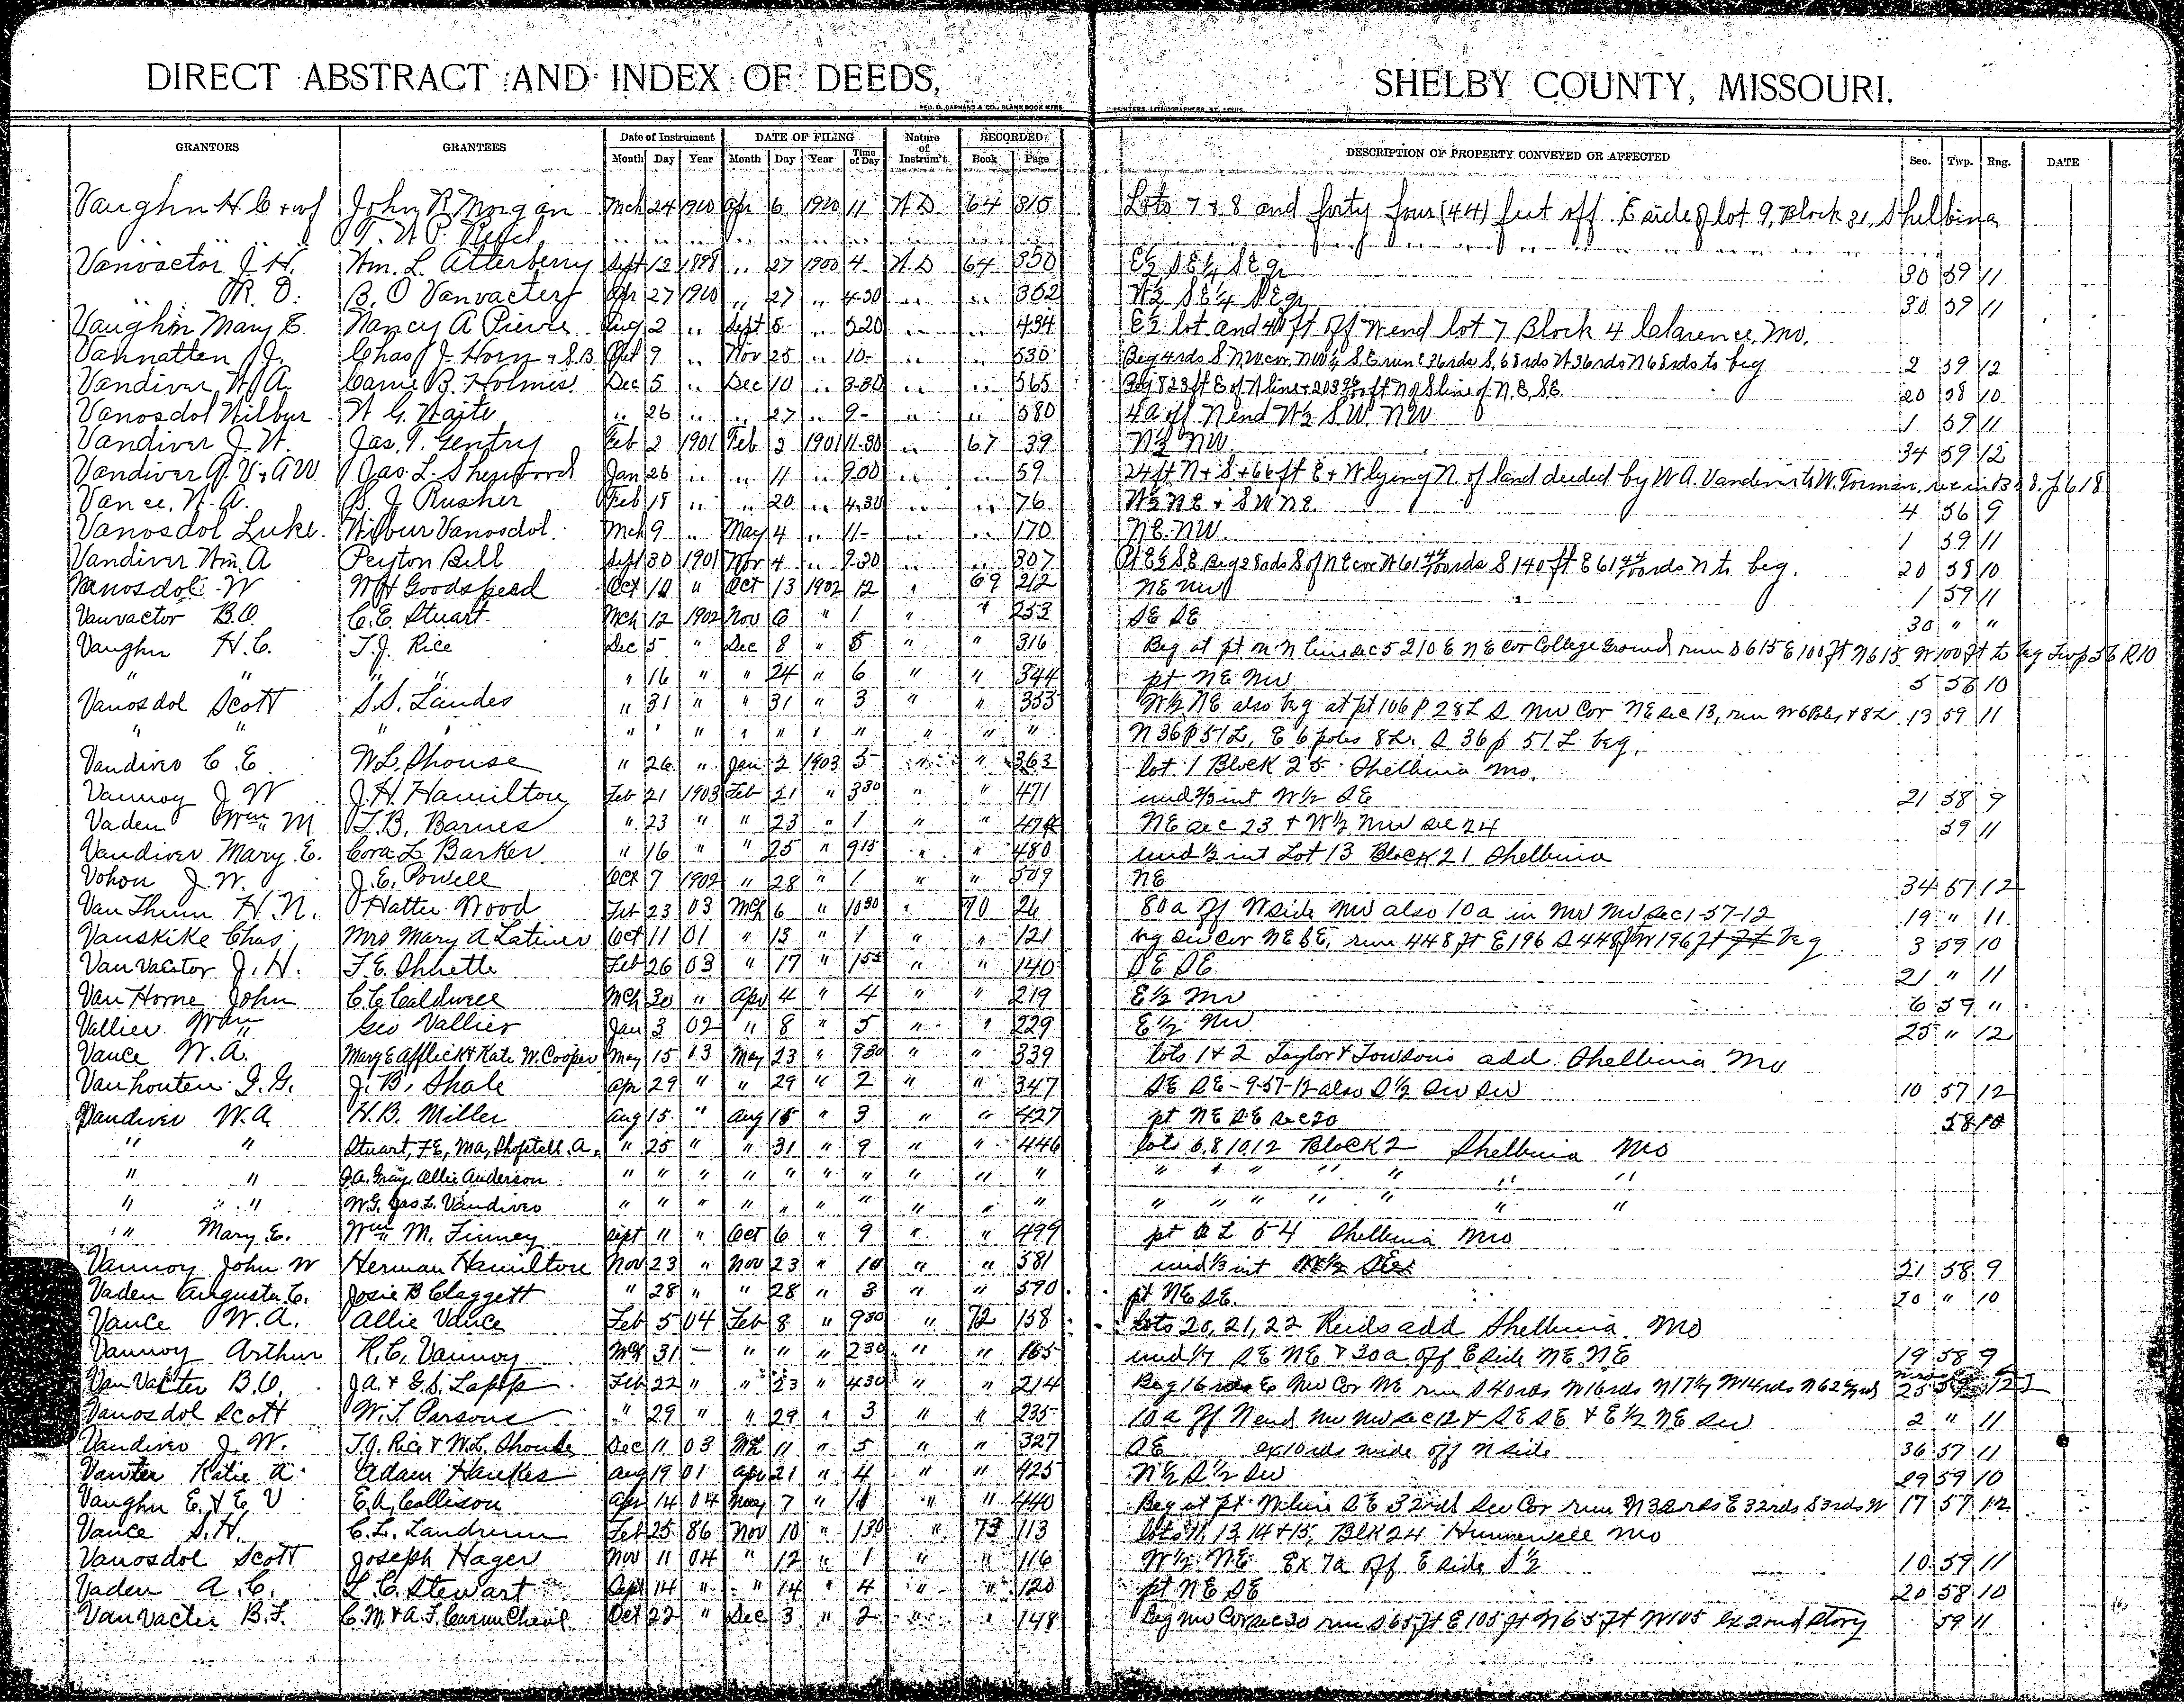 DIRECT ABSTRACT AND INDEX OF DEEDS, SHELBY COUNTY, MISSOURI.
GEO. D. BARNARD & CO., BLANK BOOK MFRS. PRINTERS, LITHOGRAPHERS, ST. LOUIS
GRANTORS GRANTEES Date of Instrument DATE OF FILING Nature of Instrum't RECORDED DESCRIPTION OF PROPERTY CONVEYED OR AFFECTED Sec. Twp. Rng. DATE
Month Day Year Month Day Year Time of Day Book Page
Vaughn H C + wf John R Morgan Mch 24 1900 Apr 6 1900 11 W D 64 315 Lots 7 & 8 and forty four (44) feet off E side of lot 9, Block 31, Shelbina
" " " T. W. P. Reid " " " " " " " " " "
Vanvactor J. H. Wm. L. Atterberry Sept 12 1898 " 27 1900 4- W D 64 350 E½ SE¼ SE qr 30 59 11
" M. O. B. O Vanvacter Apr 27 1900 " 27 " 4-30 " " 352 W½ SE¼ SE qr 30 59 11
Vaughn Mary E. Nancy A Pierce Aug 2 " Sept 5 " 5 20 " " 434 E½ lot and 40 ft off W end lot 7 Block 4 Clarence, Mo.
Vannatten J. Chas J. Horn & S.B. Oct 9 " Nov 25 " 10- " " 530 Beg 4rds S. N.W. cor. NW¼ S.E run E 36rds S, 68rds W 36rds N 68rds to beg 2 59 12
Vandiver W. A. Carrie B. Holmes Dec 5 " Dec 10 " 3-30 " " 565 Beg 823 ft E of W line + 203 ft N of S line of N.E. S.E. 20 58 10
Vanosdol Wilbur W. G. Waite " 26 " " 27 " 9- " " 580 4a off N end W½ S.W. NW 1 59 11
Vandiver J. W. Jas. T. Gentry Feb 2 1901 Feb 2 1901 11-30 " 67 39 N½ NW 34 59 12
Vandiver G. V. & A W Jas. L. Shepford Jan 26 " " 11 900 " " 59 24 ft N & S + 66 ft E & W lying N. of land deeded by W A. Vandiver to W. Forman, rec in B 38. p 618
Vance, W. A. B. J. Rusher Feb 18 " " 20 " 4,30 " " 76 W½ NE & S W NE. 4 56 9
Vanosdol Luke. Wilbur Vanosdol. Mch 9 " May 4 " 11- " " 170 NE. NW. 1 59 11
Vandiver Wm. A Peyton Bell Sept 30 1901 Nov 4 " 2.30 " " 307 Pt E½ SE Beg 28rds S of NE cor W 61 rds S 140 ft E 61 rds N to beg. 20 58 10
Vanosdol W W H Goodspeed Oct 10 " Oct 13 1902 12 " 69 212 NE NW 1 59 11
Vanvactor B.O. C.E. Stuart Mch 12 1902 Nov 6 " 1 " " 253 SE SE 30 " "
Vaughn H.C. T.J. Rice Dec 5 " Dec 8 " 5 " " 316 Beg at pt on N line sec 5 210 E NE cor College Ground run S 615 E 100 ft N 615 W 100 ft to beg Twp 56 R10
" " " " " 16 " " 24 " 6 " " 344 pt NE NW 5 56 10
Vanosdol Scott S.S. Landes " 31 " " 31 " 3 " " 353 W½ NE also beg at pt 106 P 28L S NW Cor NE sec 13, run W 6 Poles & 8L. 13 59 11
" " " " " " " " " " " " " " N 36 p 51 L, E 6 poles 8L. S 36 p 51 L beg.
Vandiver C. E. W.L. Shouse " 26 " Jan 2 1903 5 " " 363 lot 1 Block 25 Shelbina Mo.
Vannoy J W J. H. Hamilton Feb 21 1903 Feb 21 " 3 30 " " 471 und ⅔ int W½ SE 21 58 9
Vaden Wm M T. B. Barnes " 23 " " 23 " 1 " " 474 NE sec 23 & W½ NW sec 24 59 11
Vandiver Mary E. Cora L. Barker " 16 " " 25 " 9 15 " " 480 und ½ int Lot 13 Block 21 Shelbina
Vohon J. W. J. E. Powell Oct 7 1902 " 28 " 1 " " 509 NE 34 57 12
Van Thun H. N. Hattie Wood Feb 23 03 Mch 6 " 10 30 " 70 26 80a off W side NW also 10 a in NW NW sec 1-57-12 19 " 11
Vanskike Chas. Mrs Mary A Latimer Oct 11 01 " 13 " 1 " " 121 beg SW cor NE SE, run 448 ft E 196 S 448 ft W 196 ft beg 3 59 10
Van Vactor J. H. F. E. Shuette Feb 26 03 " 17 " 1 55 " " 140 SE SE 21 " 11
Van Horne John C. C. Caldwell Mch 30 " Apr 4 " 4 " " 219 E½ NW 6 59 "
Vallier Wm Geo Vallier Jan 3 02 " 8 " 5 " " 229 E½ NW 25 " 12
Vance W. A. Mary E Afflick & Kate W. Cooper May 15 03 May 23 " 9 30 " " 339 lots 1 & 2 Taylor & Towsons add Shelbina Mo
Vanhouten I. G. J. B. Shale Apr 29 " " 29 " 2 " " 347 SE SE - 9-57-12 also S½ SW SW 10 57 12
Vandiver W. A. H. B. Miller Aug 15 " Aug 15 " 3 " " 427 pt NE SE sec 20 58 10
" " Stuart, F E, Ma, Shopstall. A. " 25 " " 31 " 9 " " 446 lots 6,8,10,12 Block 2 Shelbina Mo
" " J. A. Gray, Allie Anderson " " " " " " " " " " " " " " " "
" " W. G. Jas L. Vandiver " " " " " " " " " " " " " " " "
" Mary E. Wm M. Finney Sept 11 " Oct 6 " 9 " " 499 pt O L 54 Shelbina Mo
Vannoy John W Herman Hamilton Nov 23 " Nov 23 " 10 " " 581 und ⅓ int W½ SE 21 58 9
Vaden Augusta C. Josie B Claggett " 28 " " 28 " 3 " " 590 pt NE SE. 20 " 10
Vance W. A. Allie Vance Feb 5 04 Feb 8 " 9 30 " 72 158 Lots 20, 21, 22 Reids add Shelbina Mo
Vannoy Arthur R. C. Vannoy Mch 31 - " " " 2 30 " " 165 und 1/7 SE NE & 30 a off E side NE. NE 19 58 9
Van Vacter B.O. J. A. & G. S. Lapp Feb 22 " " 23 " 4 30 " " 214 Beg 16 rds E NW Cor NE run S 40rds W 16rds N 17½ W 14rds N 62 rds 25 12
Vanosdol Scott W. T. Parsons " 29 " " 29 " 3 " " 235 10 a off N end NW NW sec 12 & SE SE & E½ NE SW 2 " 11
Vandiver J. W. T. J. Rice & W. L. Shouse Dec 11 03 Mch 11 " 5 " " 327 SE ex 10 rds wide off N side 36 57 11
Vawter Katie A. Adam Hawkes Aug 19 01 Apr 21 " 4 " " 425 N½ S½ SW 29 59 10
Vaughn E. & E. V E. A. Collison Apr 14 04 May 7 " 11 " " 440 Beg at pt. N line SE 32 rds SW Cor run N 32rds E 32rds S 3rds W 17 57 12
Vance S. H. C. L. Landrum Feb 25 86 Nov 10 " 1 30 " 73 113 lots 11, 13 14 & 15, Blk 24 Hunnewell Mo
Vanosdol Scott Joseph Hager Nov 11 04 " 12 " 1 " " 116 W½ NE Ex 7a off E side S½ 10 59 11
Vaden A. C. L. C. Stewart Sept 14 " " 14 " 4 " " 120 pt NE SE 20 58 10
Van Vacter B. F. C. M. & A. F. Oct 22 " Dec 3 " 2 " " 148 Beg NW Cor sec 30 run S 65 ft E 105 ft N 65 ft W 105 ex 2nd story 59 11